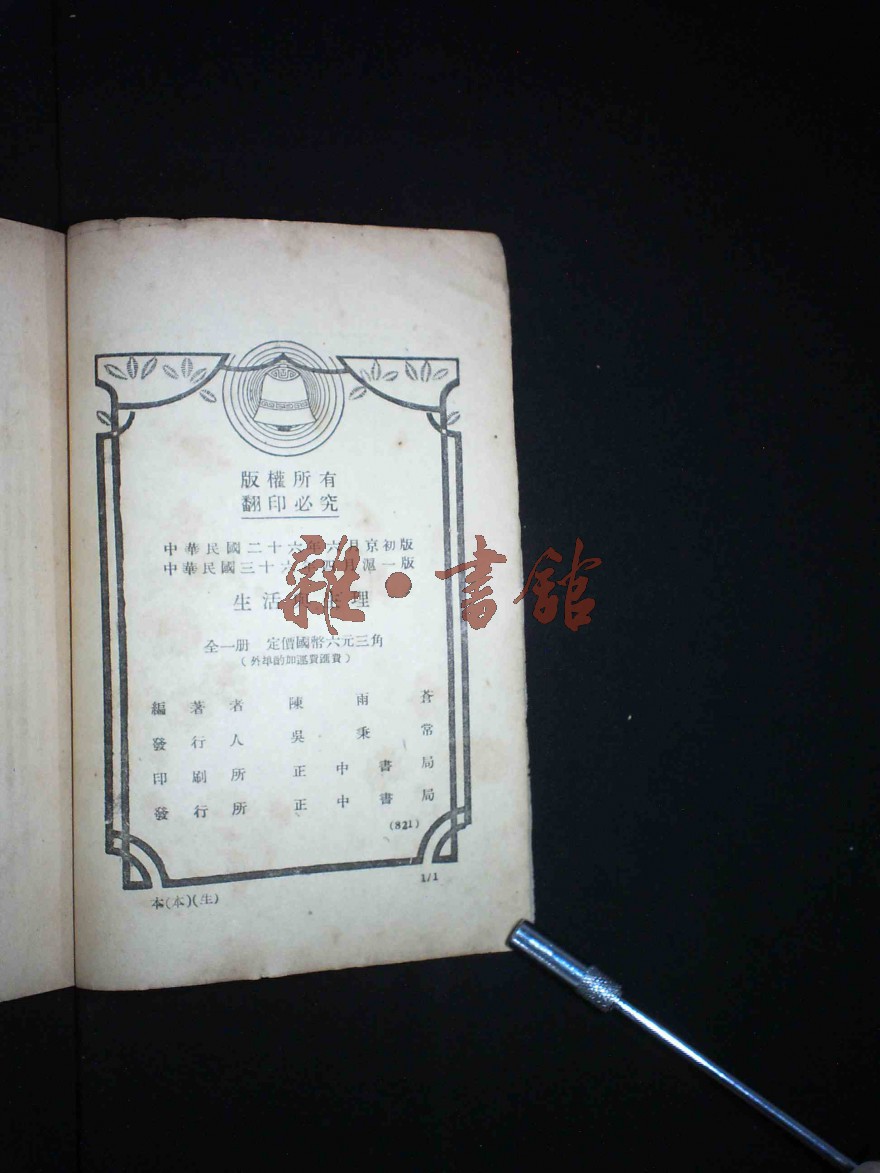 版權所有
翻印必究
中華民國二十六年六月京初版
中華民國三十六年四月滬一版
生活 生理
全一册 定價國幣六元三角
(外埠酌加運費匯費)
編著者 陳雨蒼
發行人 吳秉常
印刷所 正中書局
發行所 正中書局
(821)
1/1
本(本)(生)
雜·書館